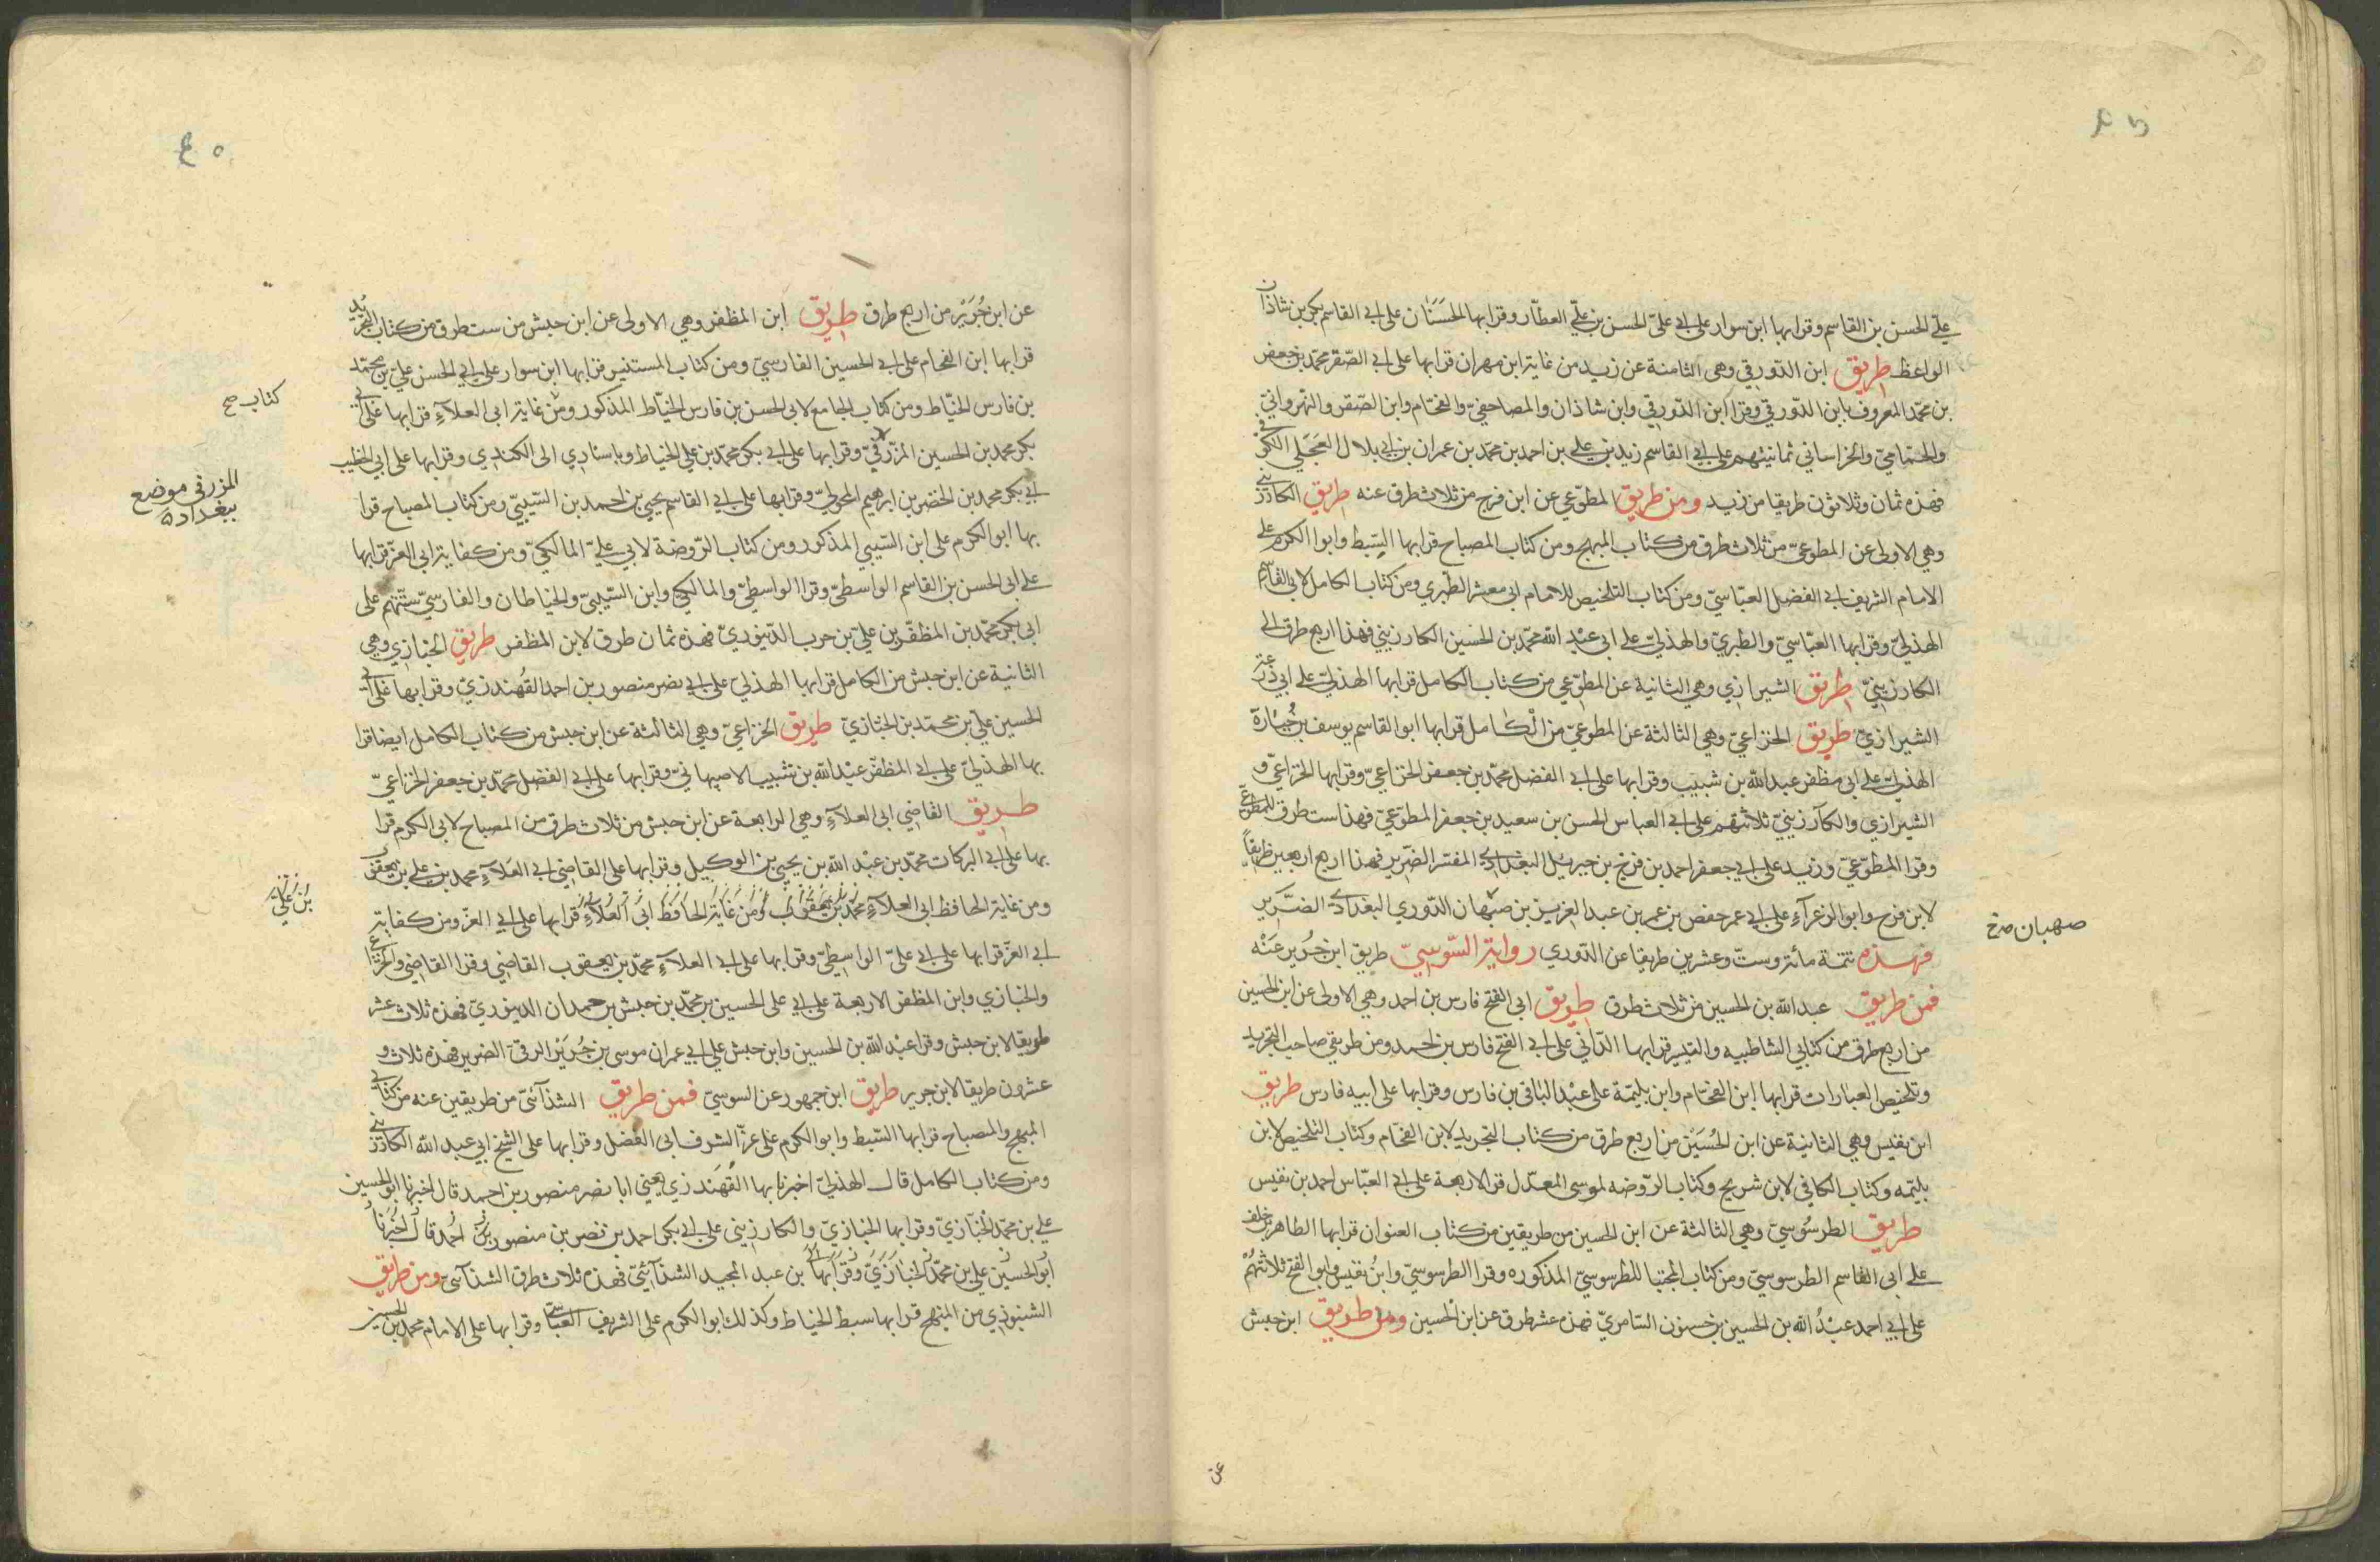 علي الحسن بن القاسم وقرا بها ابن سوار على ابي علي الحسن بن علي العطار وقرا بها الحسنان على ابي القاسم بكر بن شاذان
الواعظ طريق ابن الدورقي وهي الثامنة عن زيد من غاية ابن مهران قرا بها على ابي الصقر محمد بن جعفر
بن محمد المعروف بابن الدورقي وقرا ابن الدورقي وابن شاذان والمصاحفي والفحام وابن الصقر والنهرواني
والحمامي والخراساني ثمانيتهم على ابي القاسم زيد بن علي بن احمد بن محمد بن عمران بن ابي بلال العجلي الكوفي
فهذه ثمان وثلاثون طريقا من زيد ومن طريق المطوعي عن ابن فرح من ثلاث طرق عنه طريق الكارزيني
وهي الاولى عن المطوعي من ثلاث طرق من كتاب المبهج ومن كتاب المصباح قرا بها السبط وابوا الكرم على
الامام الشريف ابي الفضل العباسي ومن كتاب التلخيص للامام ابي معشر الطبري ومن كتاب الكامل لابي القاسم
الهذلي وقرا بها العباسي والطبري والهذلي على ابي عبد الله محمد بن الحسين الكارزيني فهذا اربع طرق الى
الكارزيني طريق الشيرازي وهي الثانية عن المطوعي من كتاب الكامل قرا بها الهذلي على ابي زرعة
الشيرازي طريق الخزاعي وهي الثالثة عن المطوعي من الكامل قرا بها ابو القاسم يوسف بن جبارة
الهذلي على ابي مظفر عبد الله بن شبيب وقرا بها على ابي الفضل محمد بن جعفر الخزاعي وقرا بها الخزاعي و
الشيرازي والكارزيني ثلاثتهم على ابي العباس الحسن بن سعيد بن جعفر المطوعي فهذا ست طرق للمطوعي
وقرا المطوعي وزيد على ابي جعفر احمد بن فرح بن جبريل البغدادي المفسر الضرير فهذا اربع اربعين طريقا
لابن فرح وابو الزعراء على ابي عمر حفص بن عمر بن عبد العزيز بن صبهان الدوري البغدادي الضرير
صهبان صح
فهذه تتمة مائة وست وعشرين طريقا عن الدوري رواية السوسي طريق ابن جرير عنه
فمن طريق عبد الله بن الحسين من ثلاث طرق طريق ابي الفتح فارس بن احمد وهي الاولى عن ابن الحسين
من اربع طرق من كتابي الشاطبيه والتيسير قرا بها الداني على ابي الفتح فارس بن احمد ومن طريقي صاحب التجريد
وتلخيص العبارات قرا بها ابن الفحام وابن بليمة على عبد الباقي بن فارس وقرا بها على ابيه فارس طريق
ابن نفيس وهي الثانية عن ابن الحسين من اربع طرق من كتاب التجريد لابن الفحام وكتاب التلخيص لابن
بليمه وكتاب الكافي لابن شريح وكتاب الروضه لموسى المعدل قرا الاربعة على ابي العباس احمد بن نفيس
طريق الطرسوسي وهي الثالثة عن ابن الحسين من طريقين من كتاب العنوان قرا بها الطاهر بن خلف
على ابي القاسم الطرسوسي ومن كتاب المجتبا للطرسوسي المذكوره وقرا الطرسوسي وابن نفيس وابو الفتح ثلاثتهم
على ابي احمد عبد الله بن الحسين بن حسنون السامري فهذه عشر طرق عن ابن الحسين ومن طريق ابن حبش
عن
عن ابن جرير من اربع طرق طريق ابن المظفر وهي الاولى عن ابن حبش من ست طرق من كتاب التجريد
قرا بها ابن الفحام على ابي الحسين الفارسي ومن كتاب المستنير قرا بها ابن سوار على ابي الحسن علي بن محمد
بن فارس الخياط ومن كتاب الجامع لابي الحسن بن فارس الخياط المذكور ومن غاية ابي العلاء قرا بها على ابي
كتاب صح
بكر محمد بن الحسين المزرفي وقرا بها على ابي بكر محمد بن علي الخياط وباسنادي الى الكندي وقرا بها على ابي الخطيب
المزرفي موضع
ببغداد
ابي بكر محمد بن الخضر بن ابراهيم المحولي وقرا بها على ابي القاسم يحيى بن احمد بن السيبي ومن كتاب المصباح قرا
بها ابو الكرم على ابن السيبي المذكور ومن كتاب الروضة لابي علي المالكي ومن كفاية ابي العز قرا بها
على ابي الحسن بن القاسم الواسطي وقرا الواسطي والمالكي وابن السيبي والخياطان والفارسي ستتهم على
ابي بكر محمد بن المظفر بن علي بن حرب الدينوري فهذه ثمان طرق لابن المظفر طريق الخبازي وهي
الثانية عن ابن حبش من الكامل قرا بها الهذلي على ابي نصر منصور بن احمد القهندزي وقرا بها على ابي
الحسين علي بن محمد بن الخبازي طريق الخزاعي وهي الثالثة عن ابن حبش من كتاب الكامل ايضا قرا
بها الهذلي على ابي المظفر عبد الله بن شبيب الاصبهاني وقرا بها على ابي الفضل محمد بن جعفر الخزاعي
طريق القاضي ابي العلاء وهي الرابعة عن ابن حبش من ثلاث طرق من المصباح لابي الكرم قرا
بها على ابي البركات محمد بن عبد الله بن يحيى بن الوكيل وقرا بها على القاضي ابي العلاء محمد بن علي بن يعقوب
ومن غاية الحافظ ابي العلاء محمد بن يعقوب ومن غاية الحافظ ابي العلاء قرا بها على ابي العز ومن كفاية
بن علي
ابي العز قرا بها على ابي علي الواسطي وقرا بها على ابي العلاء محمد بن يعقوب القاضي وقرا القاضي والخزاعي
والخبازي وابن المظفر الاربعة على ابي علي الحسين بن محمد بن حبش بن حمدان الدينوري فهذه ثلاث عشر
طريقا لابن حبش وقرا عبد الله بن الحسين وابن حبش على ابي عمران موسى بن جرير الرقي الضرير فهذه ثلاث و
عشرون طريقا لابن جرير طريق ابن جمهور عن السوسي فمن طريق الشذائي من طريقين عنه من كتابي
المبهج والمصباح قرا بها السبط وابو الكرم على عز الشرف ابي الفضل وقرا بها على الشيخ ابي عبد الله الكارزيني
ومن كتاب الكامل قال الهذلي اخبرنا بها القهندزي يعني ابا نصر منصور بن احمد قال اخبرنا ابو الحسين
علي بن محمد الخبازي وقرا بها الخبازي والكارزيني على ابي بكر احمد بن نصر بن منصور بن احمد قال اخبرنا
ابو الحسين علي بن محمد الخبازي وقرا بها بن عبد المجيد الشذائي فهذه ثلاث طرق الشذائي ومن طريق
الشنبوذي من المبهج قرا بها سبط الخياط وكذلك ابو الكرم على الشريف العباسي وقرا بها على الامام محمد بن الحسين